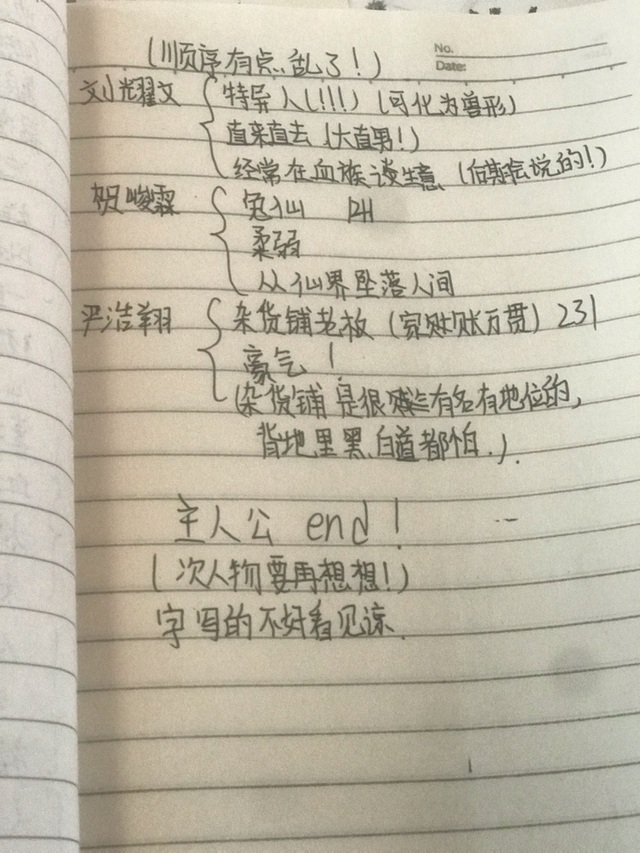 (顺序有点乱了!)
No.
Date:
刘耀文 特异人(!!!) (可化为兽形)
直来直去 (大直男!)
经常在血族谈生意 (后期会说的!)
贺峻霖 兔仙
柔弱
从仙界坠落人间
严浩翔 杂货铺老板 (家财账万贯) 231
豪气!
(杂货铺是很有名有地位的,
背地里黑.白道都怕.).
主人公 end!
(次人物要再想想!)
字写的不好看见谅.